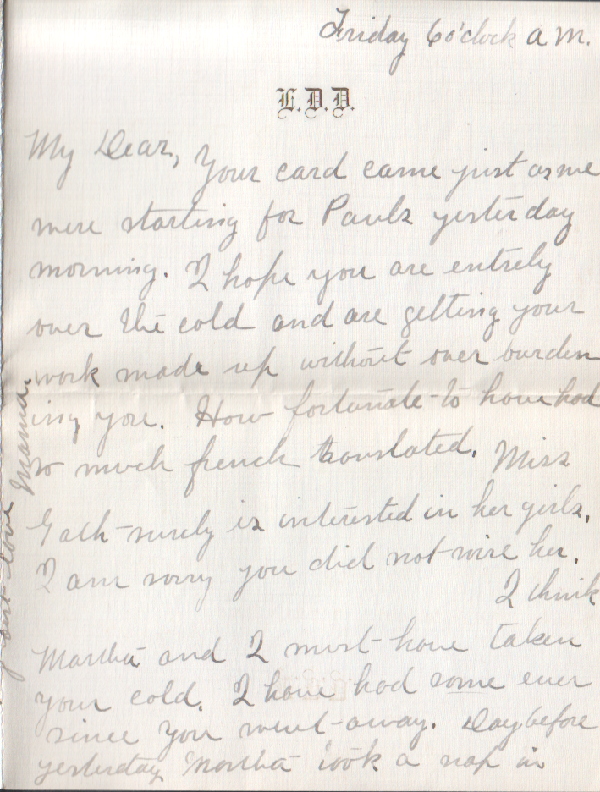 Friday 6 o'clock A.M.
E.D.D.
My Dear,
Your card came just as we
were starting for Pauls yesterday
morning. I hope you are entirely
over the cold and are getting your
work made up without over burden
ing you. How fortunate to have had
so much french translated. Miss
surely is interested in her girls.
I am sorry you did not wire her.
I think
Martha and I must have taken
your cold. I have had some ever
since you went away. Day before
yesterday Martha took a nap in
love Mama.